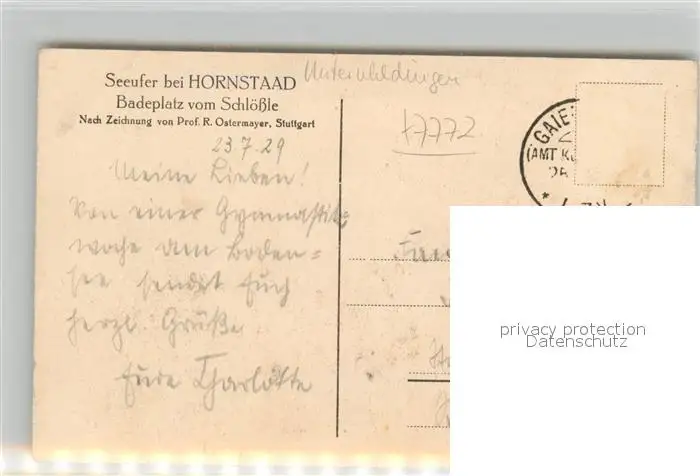 Seeufer bei HORNSTAAD
Badeplatz vom Schlößle
Nach Zeichnung von Prof. R. Ostermayer, Stuttgart
Unteruhldingen
17772
23.7.29
Meine Lieben!
Von einer Gymnastik
woche am Boden=
see sendet Euch
herzl. Grüße
Eure Charlotte
GAIE
(AMT K
privacy protection
Datenschutz